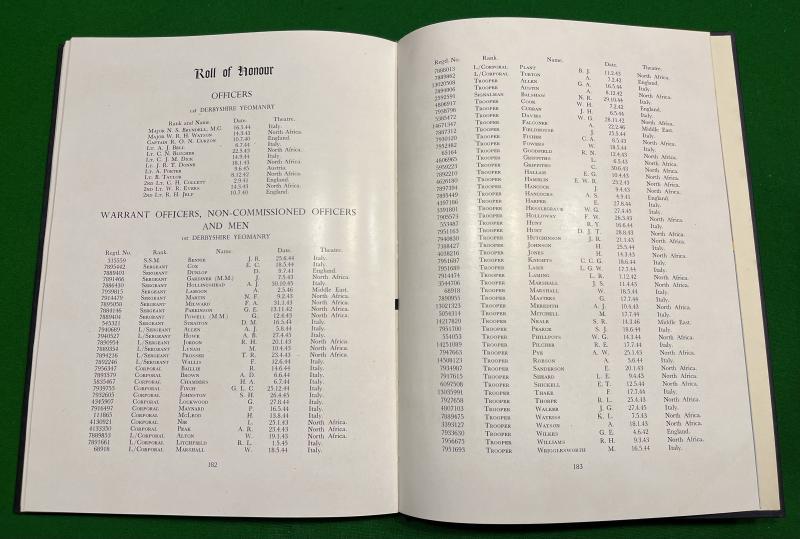 Roll of Honour
OFFICERS
1st DERBYSHIRE YEOMANRY
Rank and Name Date. Theatre.
Major N. S. Brundell, M.C. 16.5.44 Italy.
Major W. R. H. Watson 14.3.43 North Africa.
Captain R. O. N. Curzon 10.7.40 England.
Lt. A. J. Bell 6.7.44 Italy.
Lt. C. N. 22.5.43 North Africa.
Lt. C. J. M. Dick 14.9.44 Italy.
Lt. J. R. T. 18.1.43 North Africa.
Lt. A. Porter 9.6.45 Austria.
Lt. B. Taylor 8.12.42 North Africa.
2nd Lt. C. H. Collett 2.9.41 England.
2nd Lt. W. R. Evers 14.5.43 North Africa.
2nd Lt. R. H. Jelf 10.7.40 England.
WARRANT OFFICERS, NON-COMMISSIONED OFFICERS
AND MEN
1st DERBYSHIRE YEOMANRY
Regtl. No. Rank. Name. Date. Theatre.
315559 S.S.M. Bennie J. R. 25.6.44 Italy.
7895442 Sergeant Cox E. C. 18.5.44 Italy.
7889401 Sergeant Dunlop D. 9.7.41 England.
7891466 Sergeant Gardner (M.M.) J. 7.5.43 North Africa.
7886430 Sergeant Hollingshead A. J. 10.10.45 Italy.
7939815 Sergeant Lawson A. 2.5.46 Middle East.
7914479 Sergeant Martin N. F. 9.2.43 North Africa.
7895050 Sergeant Milward F. A. 31.1.43 North Africa.
7884146 Sergeant Parkinson G. E. 13.11.42 North Africa.
7889404 Sergeant Powell (M.M.) G. 12.6.43 North Africa.
545321 Sergeant Stratton D. M. 16.5.44 Italy.
7940689 L/Sergeant Allen A. J. 5.8.44 Italy.
7940527 L/Sergeant Howe A. B. 27.4.45 Italy.
7890954 L/Sergeant Jordon R. H. 20.1.43 North Africa.
7889354 L/Sergeant Lynam M. 10.4.43 North Africa.
7894216 L/Sergeant Prosser T. R. 23.4.43 North Africa.
7892246 L/Sergeant Wallis F. 12.6.44 Italy.
7956347 Corporal Baillie R. 14.6.44 Italy.
7893379 Corporal Brown A. D. 6.6.44 Italy.
5835467 Corporal Chambers H. A. 6.7.44 Italy.
7939755 Corporal Finch G. L. C. 25.12.44 Italy.
7932605 Corporal Johnston S. H. 26.4.45 Italy.
4345907 Corporal Lockwood G. 27.8.44 Italy.
7916497 Corporal Maynard P. 16.5.44 Italy.
111865 Corporal McLeod H. 13.8.44 Italy.
4130921 Corporal L. 25.1.43 North Africa.
4133350 Corporal Peak A. R. 23.4.43 North Africa.
7889853 L/Corporal Alton W. 19.1.43 North Africa.
7891661 L/Corporal Litchfield R. L. 1.5.45 Italy.
68918 L/Corporal Marshall W. 18.5.44 Italy.
182
Regtl. No. Rank. Name. Date. Theatre.
7888013 L/Corporal Plant B. J. 11.2.43 North Africa.
7889862 L/Corporal Turton A. 7.2.42 England.
13020508 Trooper Allen G. A. 16.5.44 Italy.
7894006 Trooper Austin A. 8.12.42 North Africa.
2592591 Signalman Balsham N. R. 29.10.44 Italy.
4806917 Trooper Cook W. H. 7.2.42 England.
7958796 Trooper Curran J. H. 6.5.44 Italy.
5385472 Trooper Davies W. G. 28.11.42 North Africa.
14671347 Trooper Falconer A. 22.2.46 Middle East.
7887312 Trooper Fieldhouse J. 23.5.44 Italy.
7930120 Trooper Fisher C. A. 6.5.43 North Africa.
7952482 Trooper Fowers W. 18.5.44 Italy.
65164 Trooper Goodfield R. N. 12.4.43 North Africa.
4606965 Trooper Griffiths L. 6.5.43 North Africa.
5950223 Trooper Griffiths C. 30.6.43 North Africa.
7892210 Trooper Hallam E. G. 10.4.43 North Africa.
4626180 Trooper E. W. R. 23.2.43 North Africa.
7897394 Trooper Hancock J. 9.4.43 North Africa.
7895449 Trooper Hancocks A. S. 4.9.41 England.
4397186 Trooper Harper E. 27.8.44 Italy.
3391801 Trooper W. G. 27.4.45 Italy.
7905573 Trooper Holloway F. W. 26.5.43 North Africa.
553487 Trooper Hunt R. Y. 16.6.44 Italy.
7951163 Trooper Hunt D. J. T. 28.8.43 North Africa.
7940830 Trooper Hutchinson J. R. 21.1.43 North Africa.
7388427 Trooper Johnson H. 25.5.44 Italy.
4038216 Trooper Jones H. 14.3.43 North Africa.
7951687 Trooper Knights C. C. G. 18.6.44 Italy.
7951689 Trooper Lakie L. G. W. 17.5.44 Italy.
7914474 Trooper Laming L. R. 1.12.42 North Africa.
3544706 Trooper Marshall J. S. 11.4.43 North Africa.
68918 Trooper Marshall W. 18.5.44 Italy.
7890955 Trooper Masters G. 17.7.44 Italy.
13021323 Trooper Meredith A. J. 10.4.43 North Africa.
5054314 Trooper Mitchell M. 17.7.44 Italy.
14217820 Trooper Neale S. R. 14.3.46 Middle East.
7951700 Trooper Pearce S. J. 18.6.44 Italy.
554053 Trooper Phillpots W. G. 14.3.44 North Africa.
14251089 Trooper Pilcher R. E. 17.7.44 Italy.
7947663 Trooper Pye A. W. 25.1.43 North Africa.
14508123 Trooper Robson A. 5.6.44 Italy.
7934987 Trooper Sanderson E. 20.1.43 North Africa.
7917615 Trooper Sheard L. E. 9.4.43 North Africa.
6097508 Trooper Shickell E. T. 12.5.44 North Africa.
13035991 Trooper Thake F. 17.7.44 Italy.
7927658 Trooper Thorpe R. L. 25.4.43 North Africa.
4007103 Trooper Walker J. G. 27.4.45 Italy.
7889475 Trooper K. L. 7.5.43 North Africa.
3393127 Trooper Watson A. 18.1.43 North Africa.
7933630 Trooper Wilkes G. E. 4.6.42 England.
7956675 Trooper Williams R. H. 9.3.43 North Africa.
7951693 Trooper Wrigglesworth M. 16.5.44 Italy.
183